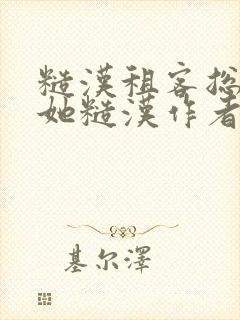 糙漢租客總
她糙漢作者
基尔澤